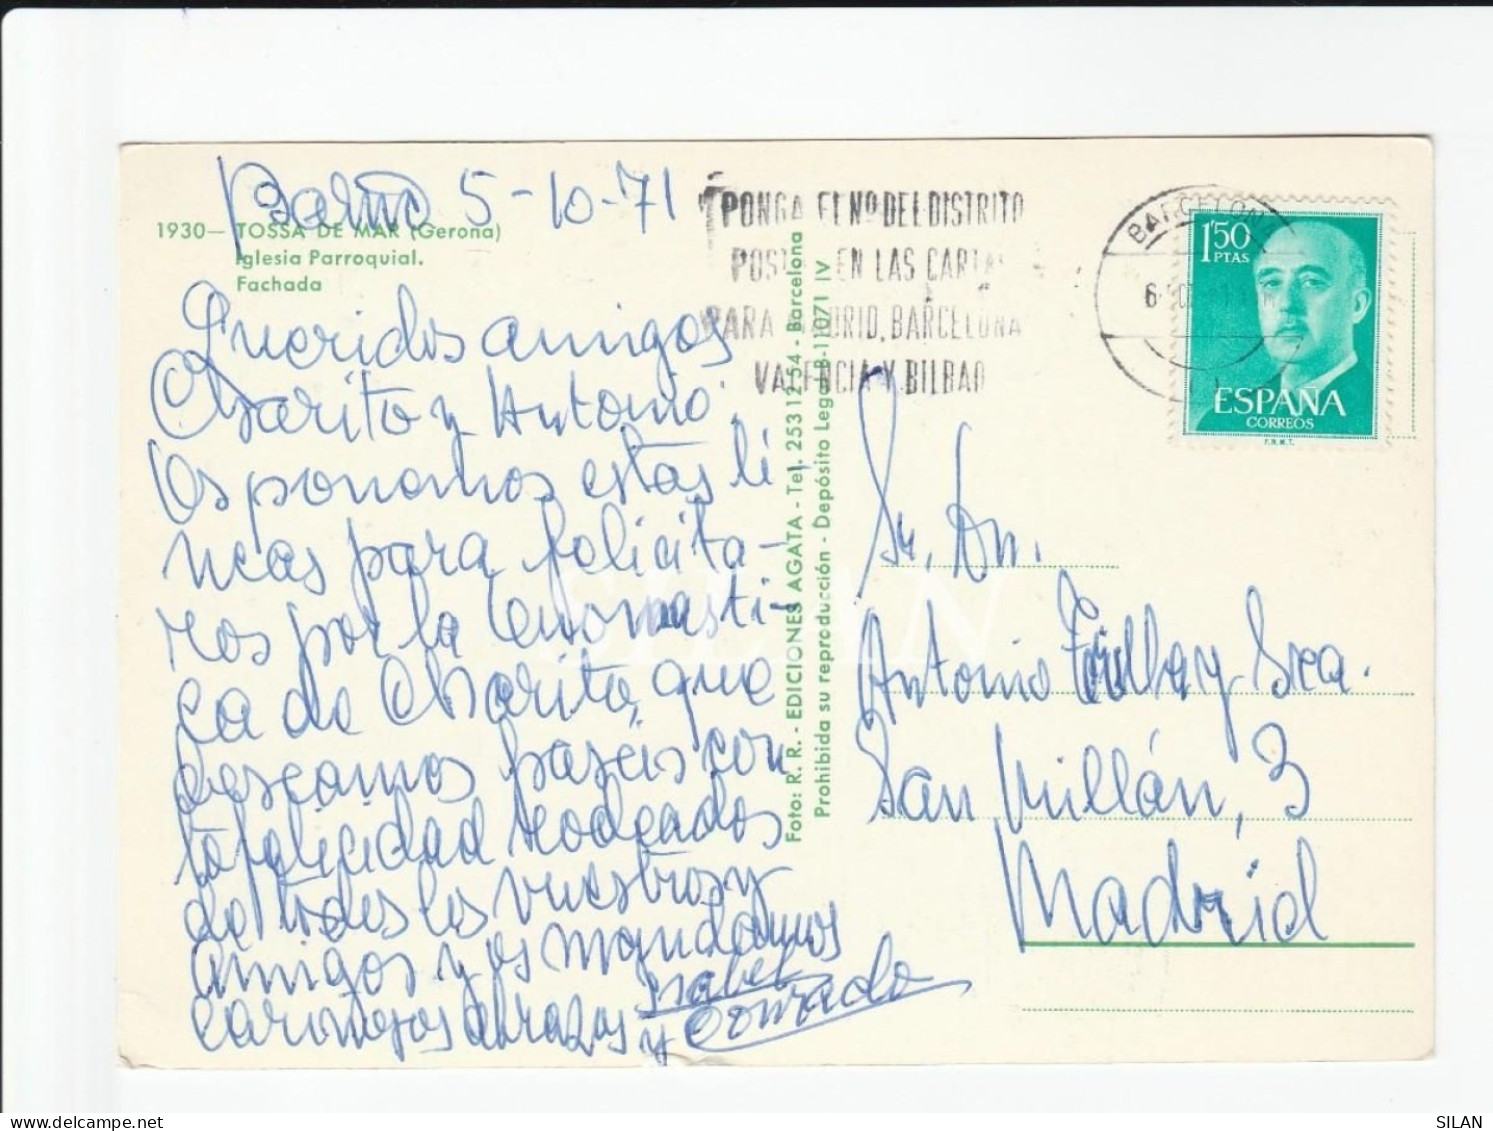 Barna 5-10-71
1930— TOSSA DE MAR (Gerona)
Iglesia Parroquial.
Fachada
Queridos amigos
Charito y Antonio
Os ponemos estas lí
neas para felicita-
ros por la Onomasti-
ca de Charito, que
deseamos paseis con
to felicidad rodeados
de todos los vuestros y
amigos y os mandamos
cariñosos abrazos
Isabel
y Conrado
Foto: R. R. - EDICIONES AGATA - Tel. 253 12 54 - Barcelona
Prohibida su reproducción - Depósito Legal B-11071 IV
PONGA EL Nº DEL DISTRITO
POSTAL EN LAS CARTAS
PARA MADRID, BARCELONA
VALENCIA Y BILBAO
BARCELONA
6
1'50
PTAS
ESPAÑA
CORREOS
F.N.M.T.
Sr. Dn.
Antonio y Sra.
San Millán, 3
Madrid
SILAN
SILAN